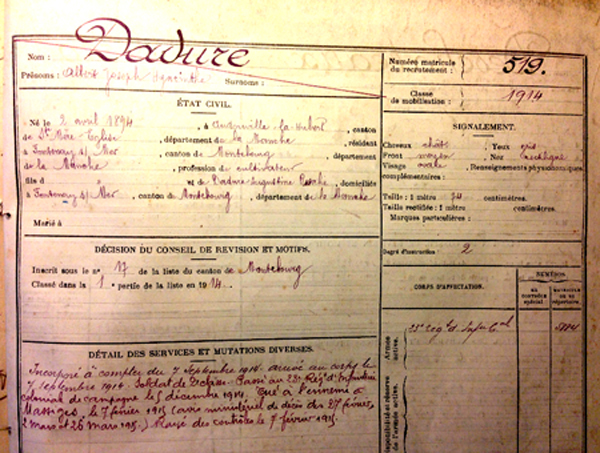 Nom : Dadure
Prénoms : Albert Joseph Hyacinthe Surnoms :
Numéro matricule du recrutement : 519.
Classe de mobilisation : 1914
ÉTAT CIVIL.
Né le 2 avril 1894, à Audouville-la-Hubert, canton
de Ste Mère-Eglise, département de la Manche, résident
à Fontenay s/ Mer, canton de Montebourg, département
de la Manche, profession de cultivateur
fils d et de Dadure Augustine, domiciliés
à Fontenay s/ Mer, canton de Montebourg, département de la Manche
Marié à
SIGNALEMENT.
Cheveux chât Yeux gris
Front moyen Nez rectiligne
Visage ovale Renseignements physionomiques
Taille : 1 mètre 74 centimètres.
Taille rectifiée : 1 mètre centimètres.
Marques particulières :
Degré d'instruction : 2
DÉCISION DU CONSEIL DE REVISION ET MOTIFS.
Inscrit sous le n° 17 de la liste du canton de Montebourg
Classé dans la 1e partie de la liste en 1914.
CORPS D'AFFECTATION.
NUMÉROS
AU CONTRÔLE spécial
MATRICULE OU AU répertoire.
Armée active.
Disponibilité et réserve de l'armée active.
DÉTAIL DES SERVICES ET MUTATIONS DIVERSES.
Incorporé à compter du 7 Septembre 1914. arrivé au corps le
7 septembre 1914. Soldat de 2e classe. Passé au 23e Régt d'Infanterie
colonial de campagne le 5 décembre 1914. Tué à l'ennemi à
Massiges, le 7 février 1915 (avis ministériel de décès des 27 février,
2 mars et 26 mars 1915.) Rayé des contrôles le 7 février 1915.